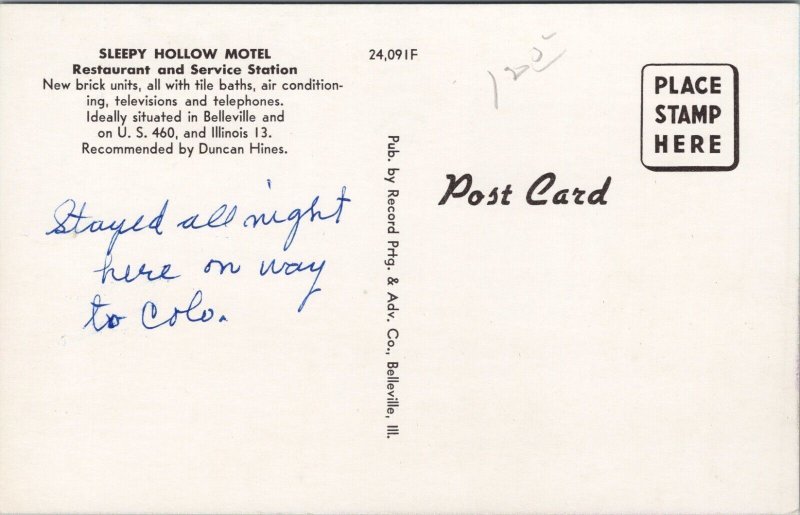 SLEEPY HOLLOW MOTEL
Restaurant and Service Station
New brick units, all with tile baths, air condition-
ing, televisions and telephones.
Ideally situated in Belleville and
on U. S. 460, and Illinois 13.
Recommended by Duncan Hines.
Stayed all night
here on way
to Colo.
24,091F
Pub. by Record Prtg. & Adv. Co., Belleville, Ill.
Post Card
PLACE
STAMP
HERE